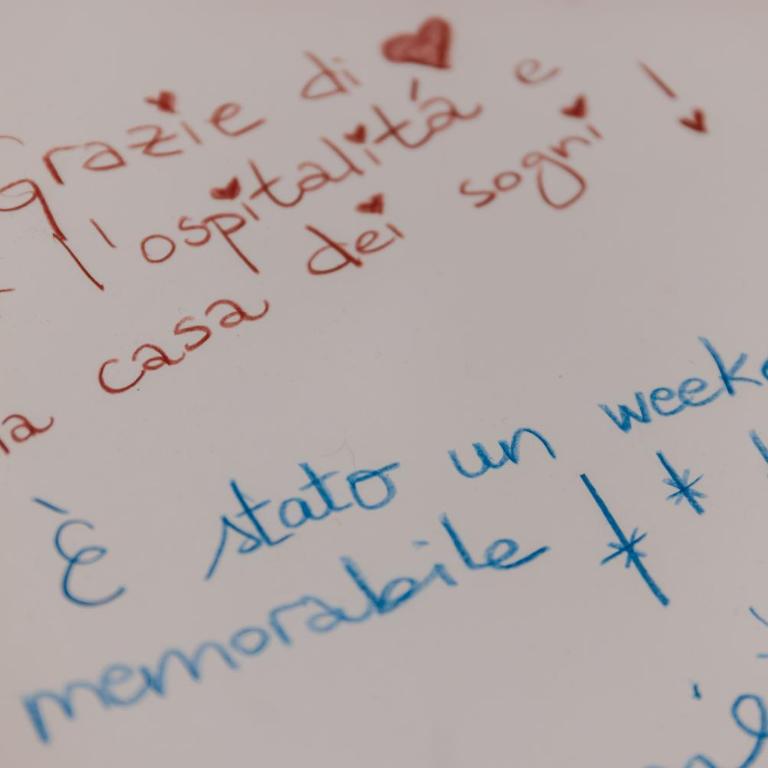 grazie di ♥ e
l'ospitalitá
casa dei sogni!
È stato un week
memorabile!